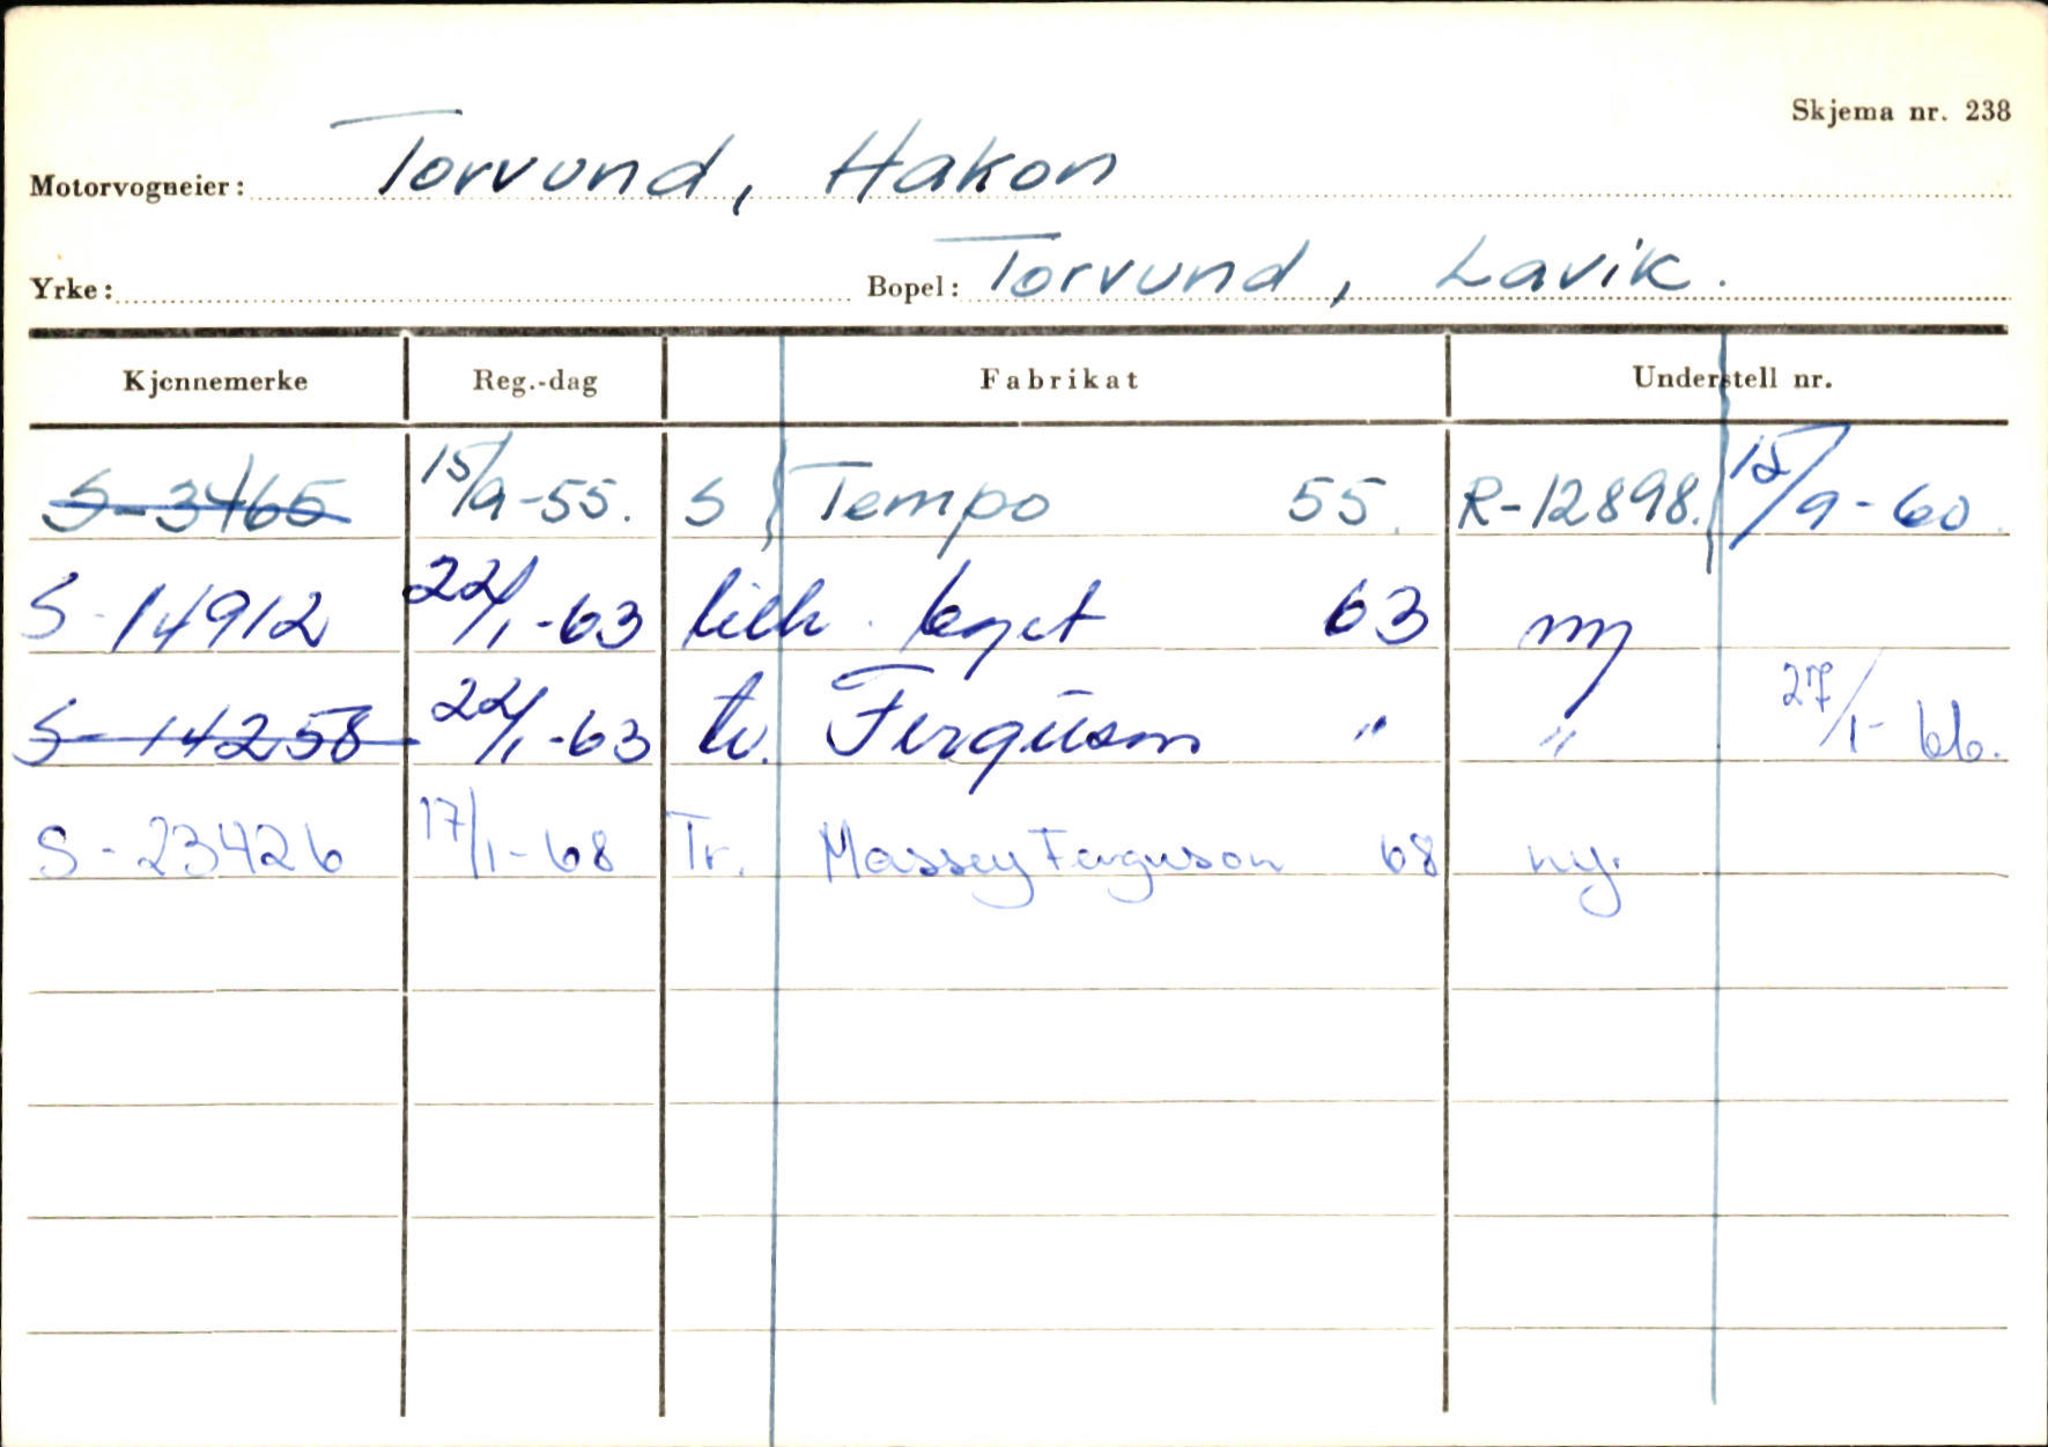 Skjema nr. 238
Motorvogneier: Torvund, Hakon
Yrke: Bopel: Torvund, Lavik.
Kjennemerke Reg.-dag Fabrikat Understell nr.
S-3465 15/9-55. S Tempo 55. R-12898. 15/9-60.
S-14912 22/1-63 63 ny
S-14258 22/1-63 tr. Ferguson " " 27/1-66.
S-23426 17/1-68 Tr. Massey Ferguson 68 ny.